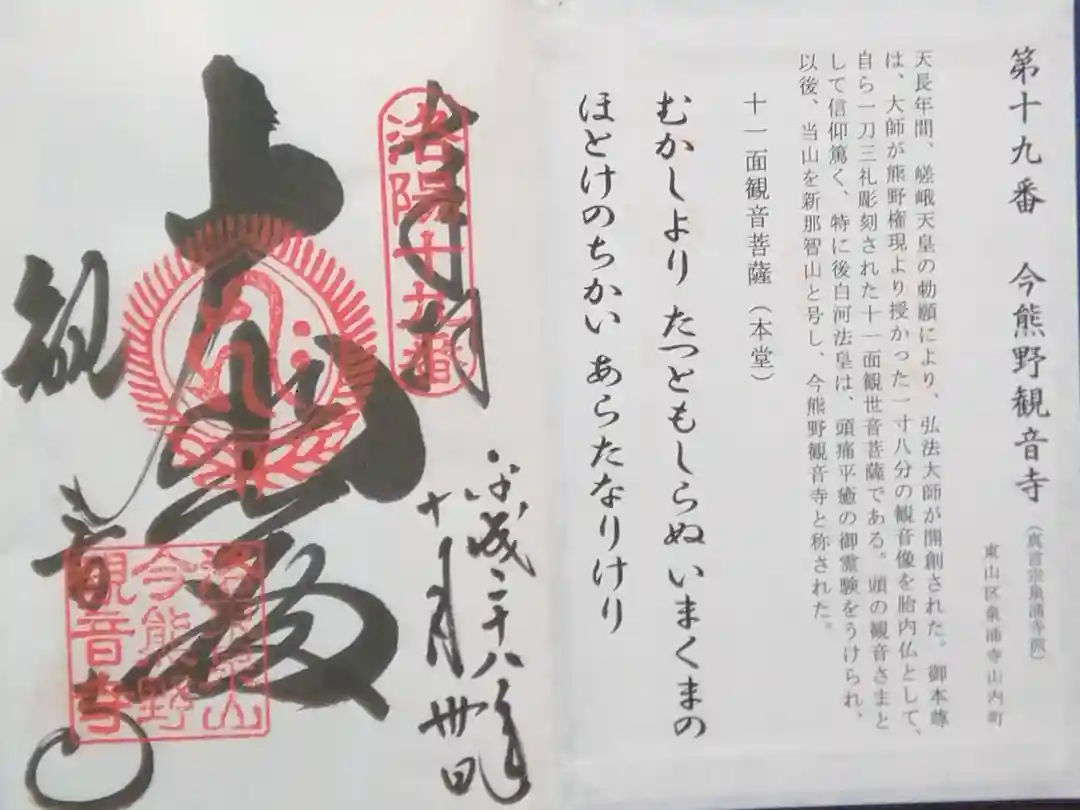 第十九番 今熊野観音寺
(真言宗泉涌寺派)
東山区泉涌寺山内町
天長年間、嵯峨天皇の勅願により、弘法大師が開創された。御本尊
は、大師が熊野権現より授かった一寸八分の観音像を胎内仏として、
自ら一刀三礼彫刻された十一面観世音菩薩である。頭の観音さまと
して信仰篤く、特に後白河法皇は、頭痛平癒の御霊験をうけられ、
以後、当山を新那智山と号し、今熊野観音寺と称された。
十一面観音菩薩(本堂)
むかしより たつともしらぬ いまくまの
ほとけのちかい あらたなりけり
洛陽十九番
平成二十八年
十月卅日
大悲殿
観音寺
今熊野
観音寺